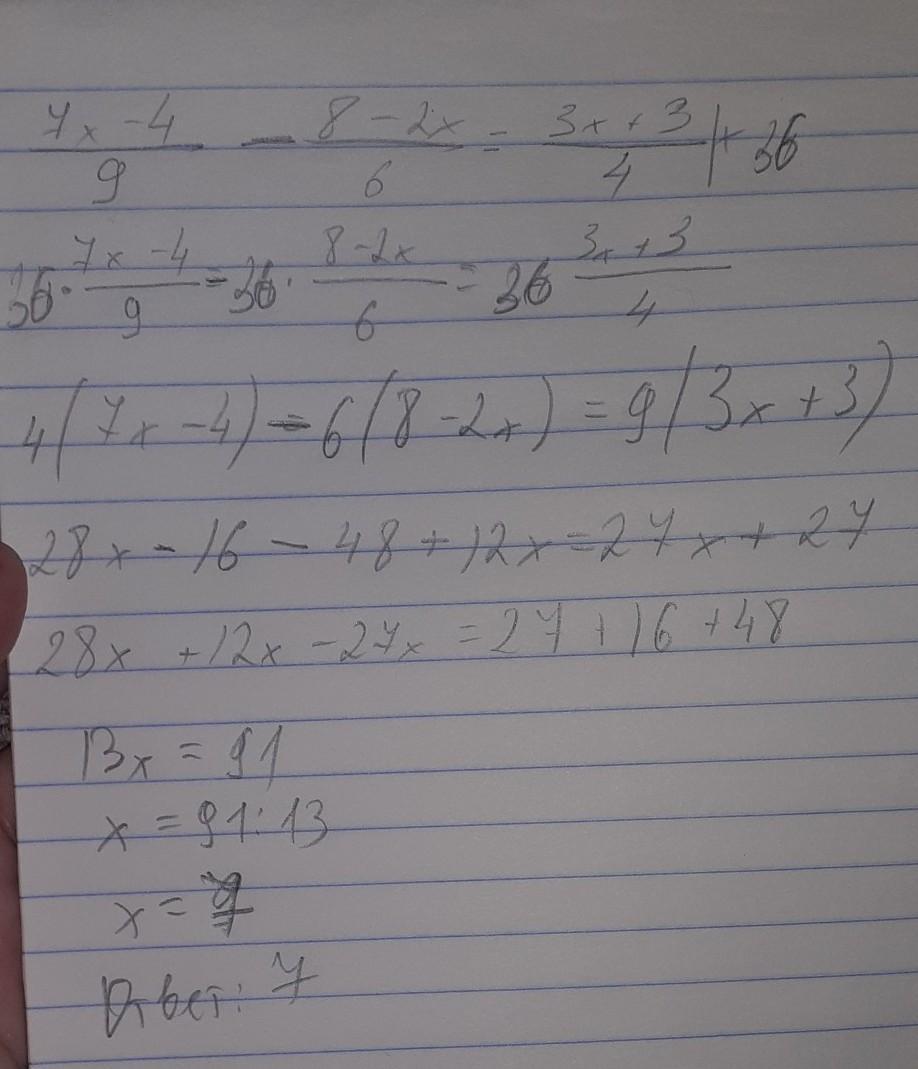 7x - 4 / 9 - 8 - 2x / 6 = 3x + 3 / 4 | · 36
36 · 7x - 4 / 9 - 36 · 8 - 2x / 6 = 36 3x + 3 / 4
4(7x - 4) - 6(8 - 2x) = 9(3x + 3)
28x - 16 - 48 + 12x = 27x + 27
28x + 12x - 27x = 27 + 16 + 48
13x = 91
x = 91 : 13
x = 7
Ответ: 7